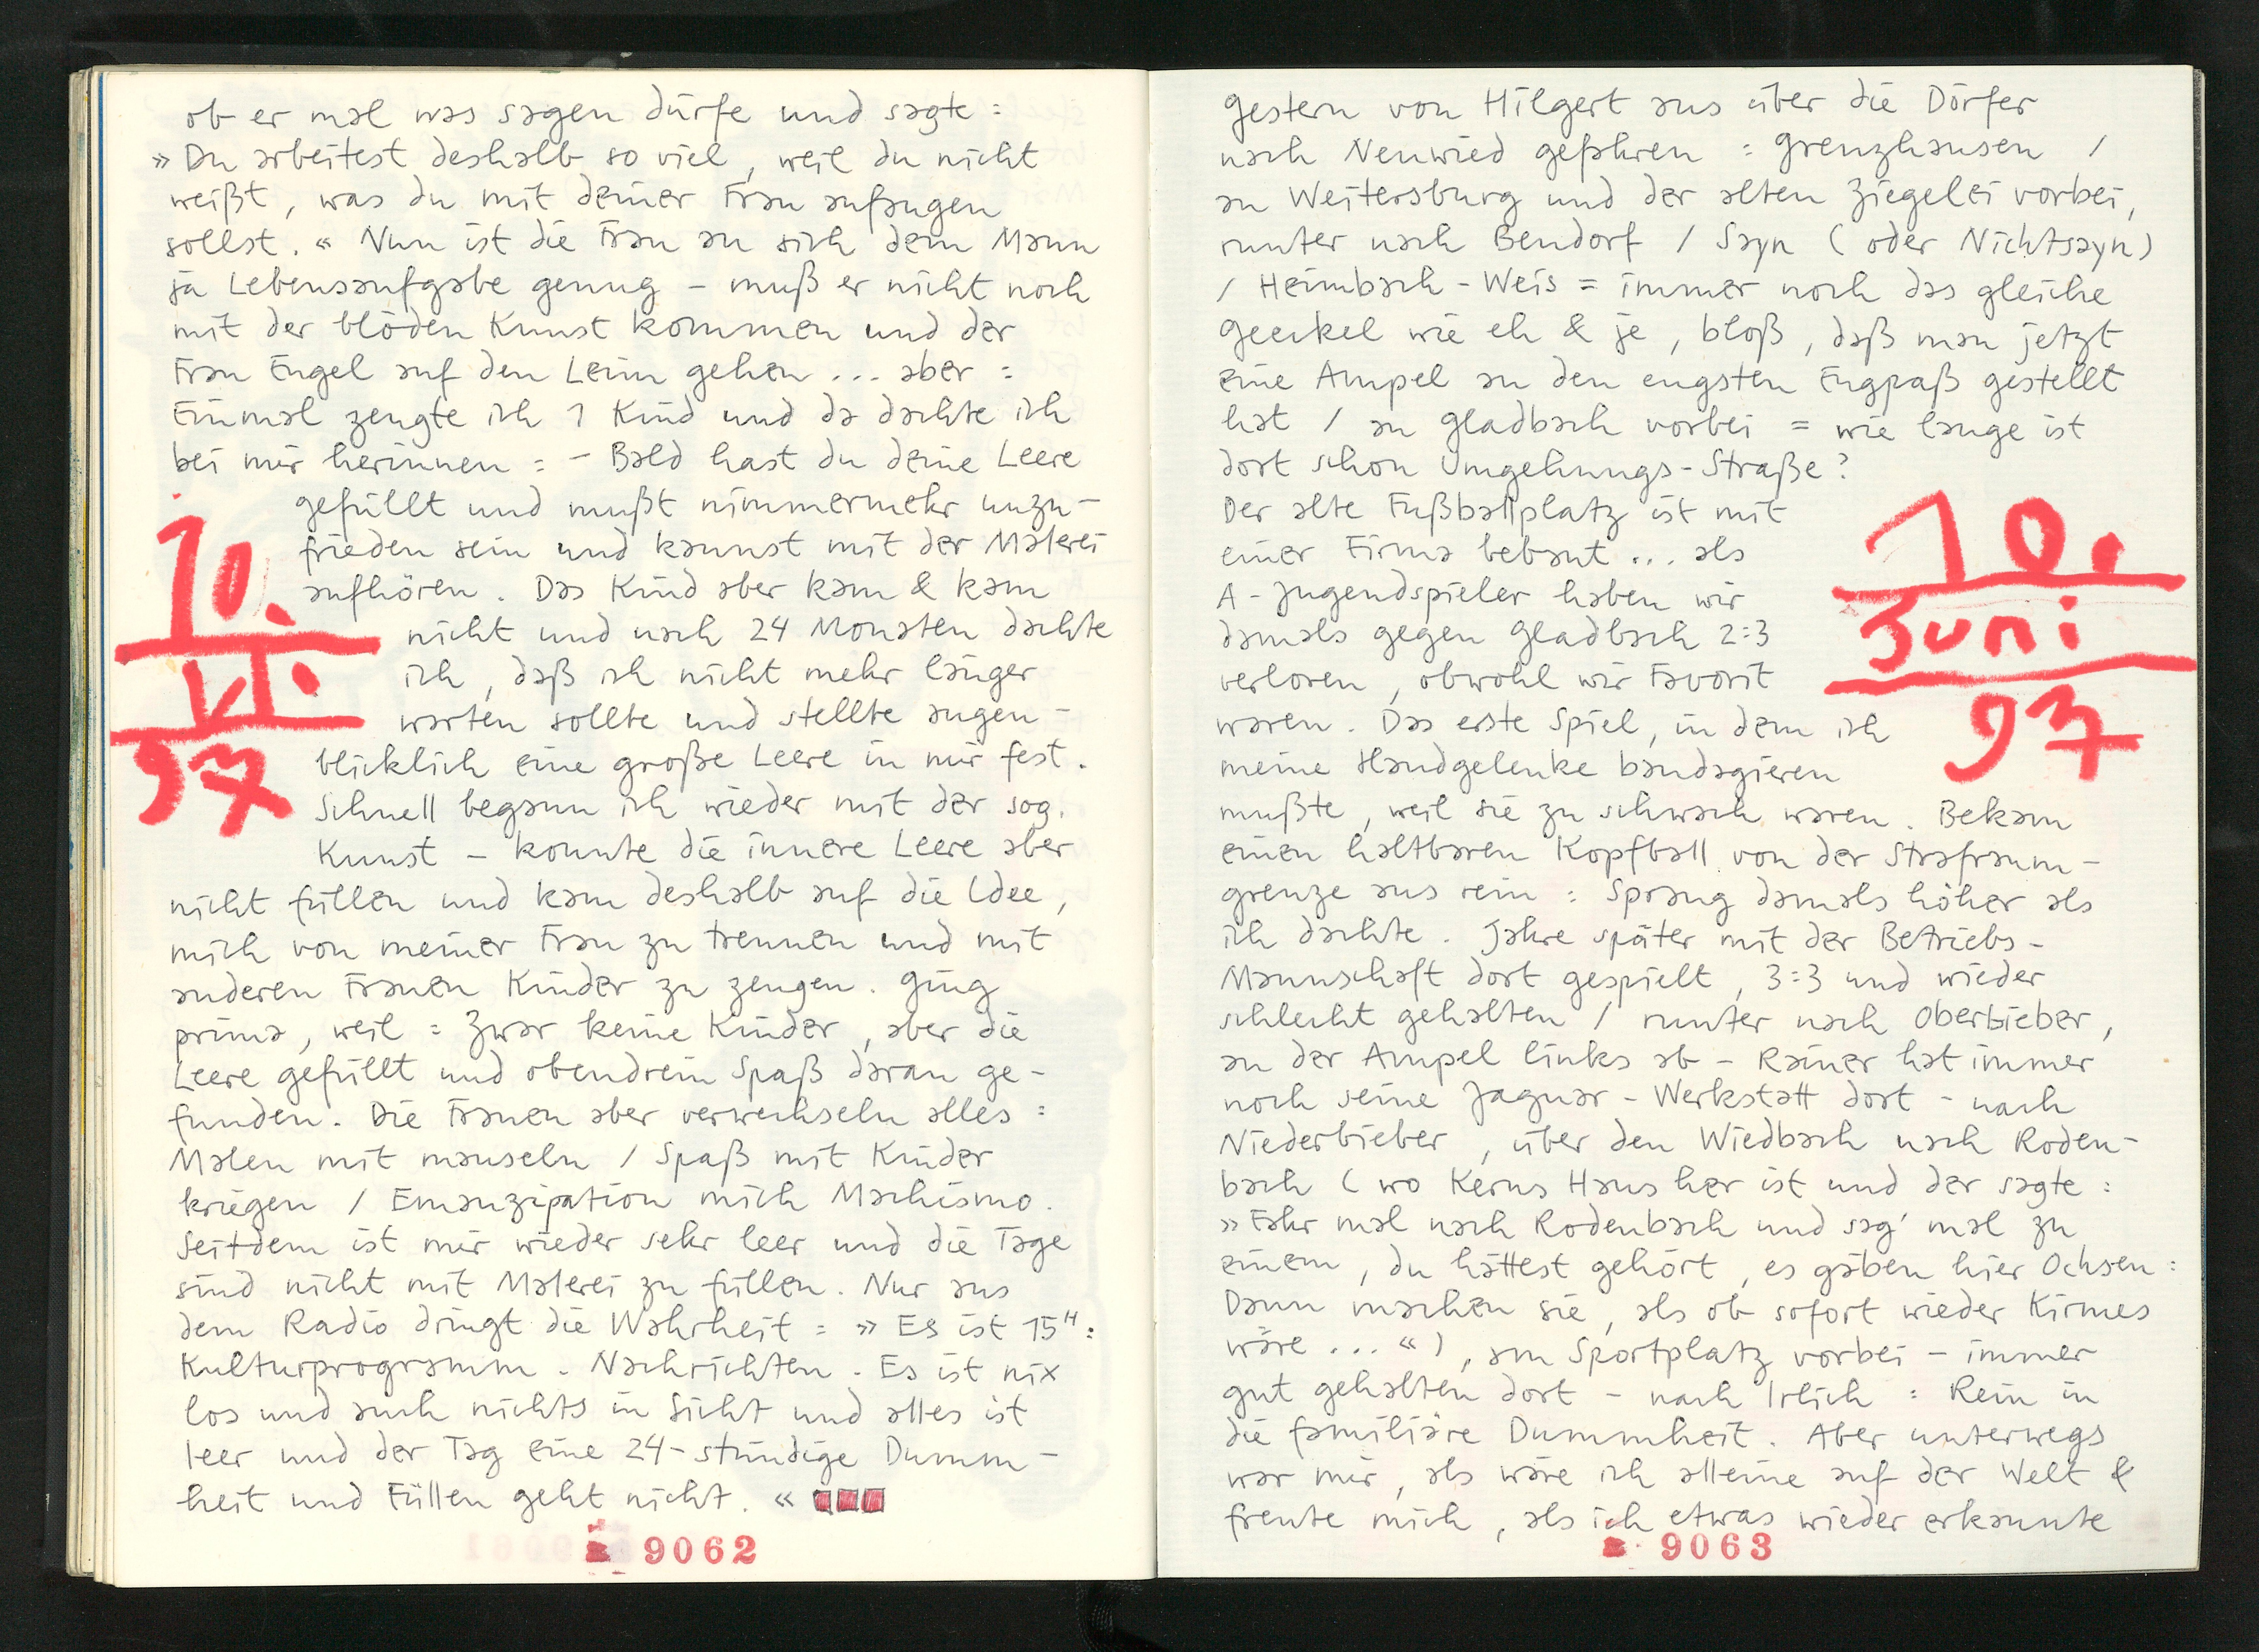 ob er mal was sagen dürfe und sagte :
» Du arbeitest deshalb so viel, weil du nicht
weißt, was du mit deiner Frau anfangen
sollst. « Nun ist die Frau an sich dem Mann
ja Lebensaufgabe genug – muß er nicht noch
mit der blöden Kunst kommen und der
Frau Engel auf den Leim gehen ... aber :
Einmal zeugte ich 1 Kind und da dachte ich
bei mir herinnen : – Bald hast du deine Leere
gefüllt und mußt nimmermehr unzu-
frieden sein und kannst mit der Malerei
aufhören. Das Kind aber kam & kam
nicht und nach 24 Monaten dachte
ich, daß ich nicht mehr länger
warten sollte und stellte augen-
blicklich eine große Leere in mir fest.
Schnell begann ich wieder mit der sog.
Kunst – konnte die innere Leere aber
nicht füllen und kam deshalb auf die Idee,
mich von meiner Frau zu trennen und mit
anderen Frauen Kinder zu zeugen. Ging
prima, weil : Zwar keine Kinder, aber die
Leere gefüllt und obendrein Spaß daran ge-
funden. Die Frauen aber verwechseln alles :
Malen mit mauseln / Spaß mit Kinder
kriegen / Emanzipation mich Machismo.
Seitdem ist mir wieder sehr leer und die Tage
sind nicht mit Malerei zu füllen. Nur aus
dem Radio dringt die Wahrheit : » Es ist 15ᴴ :
Kulturprogramm. Nachrichten. Es ist nix
los und auch nichts in Sicht und alles ist
leer und der Tag eine 24-stündige Dumm-
heit und Füllen geht nicht. «
10.
VI.
97
9062
Gestern von Hilgert aus über die Dörfer
nach Neuwied gefahren : Grenzhausen /
an Weitersburg und der alten Ziegelei vorbei,
runter nach Bendorf / Sayn ( oder Nichtsayn )
/ Heimbach-Weis = immer noch das gleiche
Geeckel wie eh & je, bloß, daß man jetzt
eine Ampel an den engsten Engpaß gestellt
hat / an Gladbach vorbei = wie lange ist
dort schon Umgehungs-Straße ?
Der alte Fußballplatz ist mit
einer Firma bebaut ... als
A-Jugendspieler haben wir
damals gegen Gladbach 2:3
verloren, obwohl wir Favorit
waren. Das erste Spiel, in dem ich
meine Handgelenke bandagieren
mußte, weil sie zu schwach waren. Bekam
einen haltbaren Kopfball von der Strafraum-
grenze aus rein : Sprang damals höher als
ich dachte. Jahre später mit der Betriebs-
Mannschaft dort gespielt, 3:3 und wieder
schlecht gehalten / runter nach Oberbieber,
an der Ampel links ab – Rainer hat immer
noch seine Jaguar-Werkstatt dort – nach
Niederbieber, über den Wiedbach nach Roden-
bach ( wo Kerns Haus her ist und der sagte :
» Fahr mal nach Rodenbach und sag' mal zu
einem, du hättest gehört, es gäben hier Ochsen :
Dann machen sie, als ob sofort wieder Kirmes
wäre ... « ), am Sportplatz vorbei – immer
gut gehalten dort – nach Irlich : Rein in
die familiäre Dummheit. Aber unterwegs
war mir, als wäre ich alleine auf der Welt &
freute mich, als ich etwas wieder erkannte
10.
Juni
97
9063